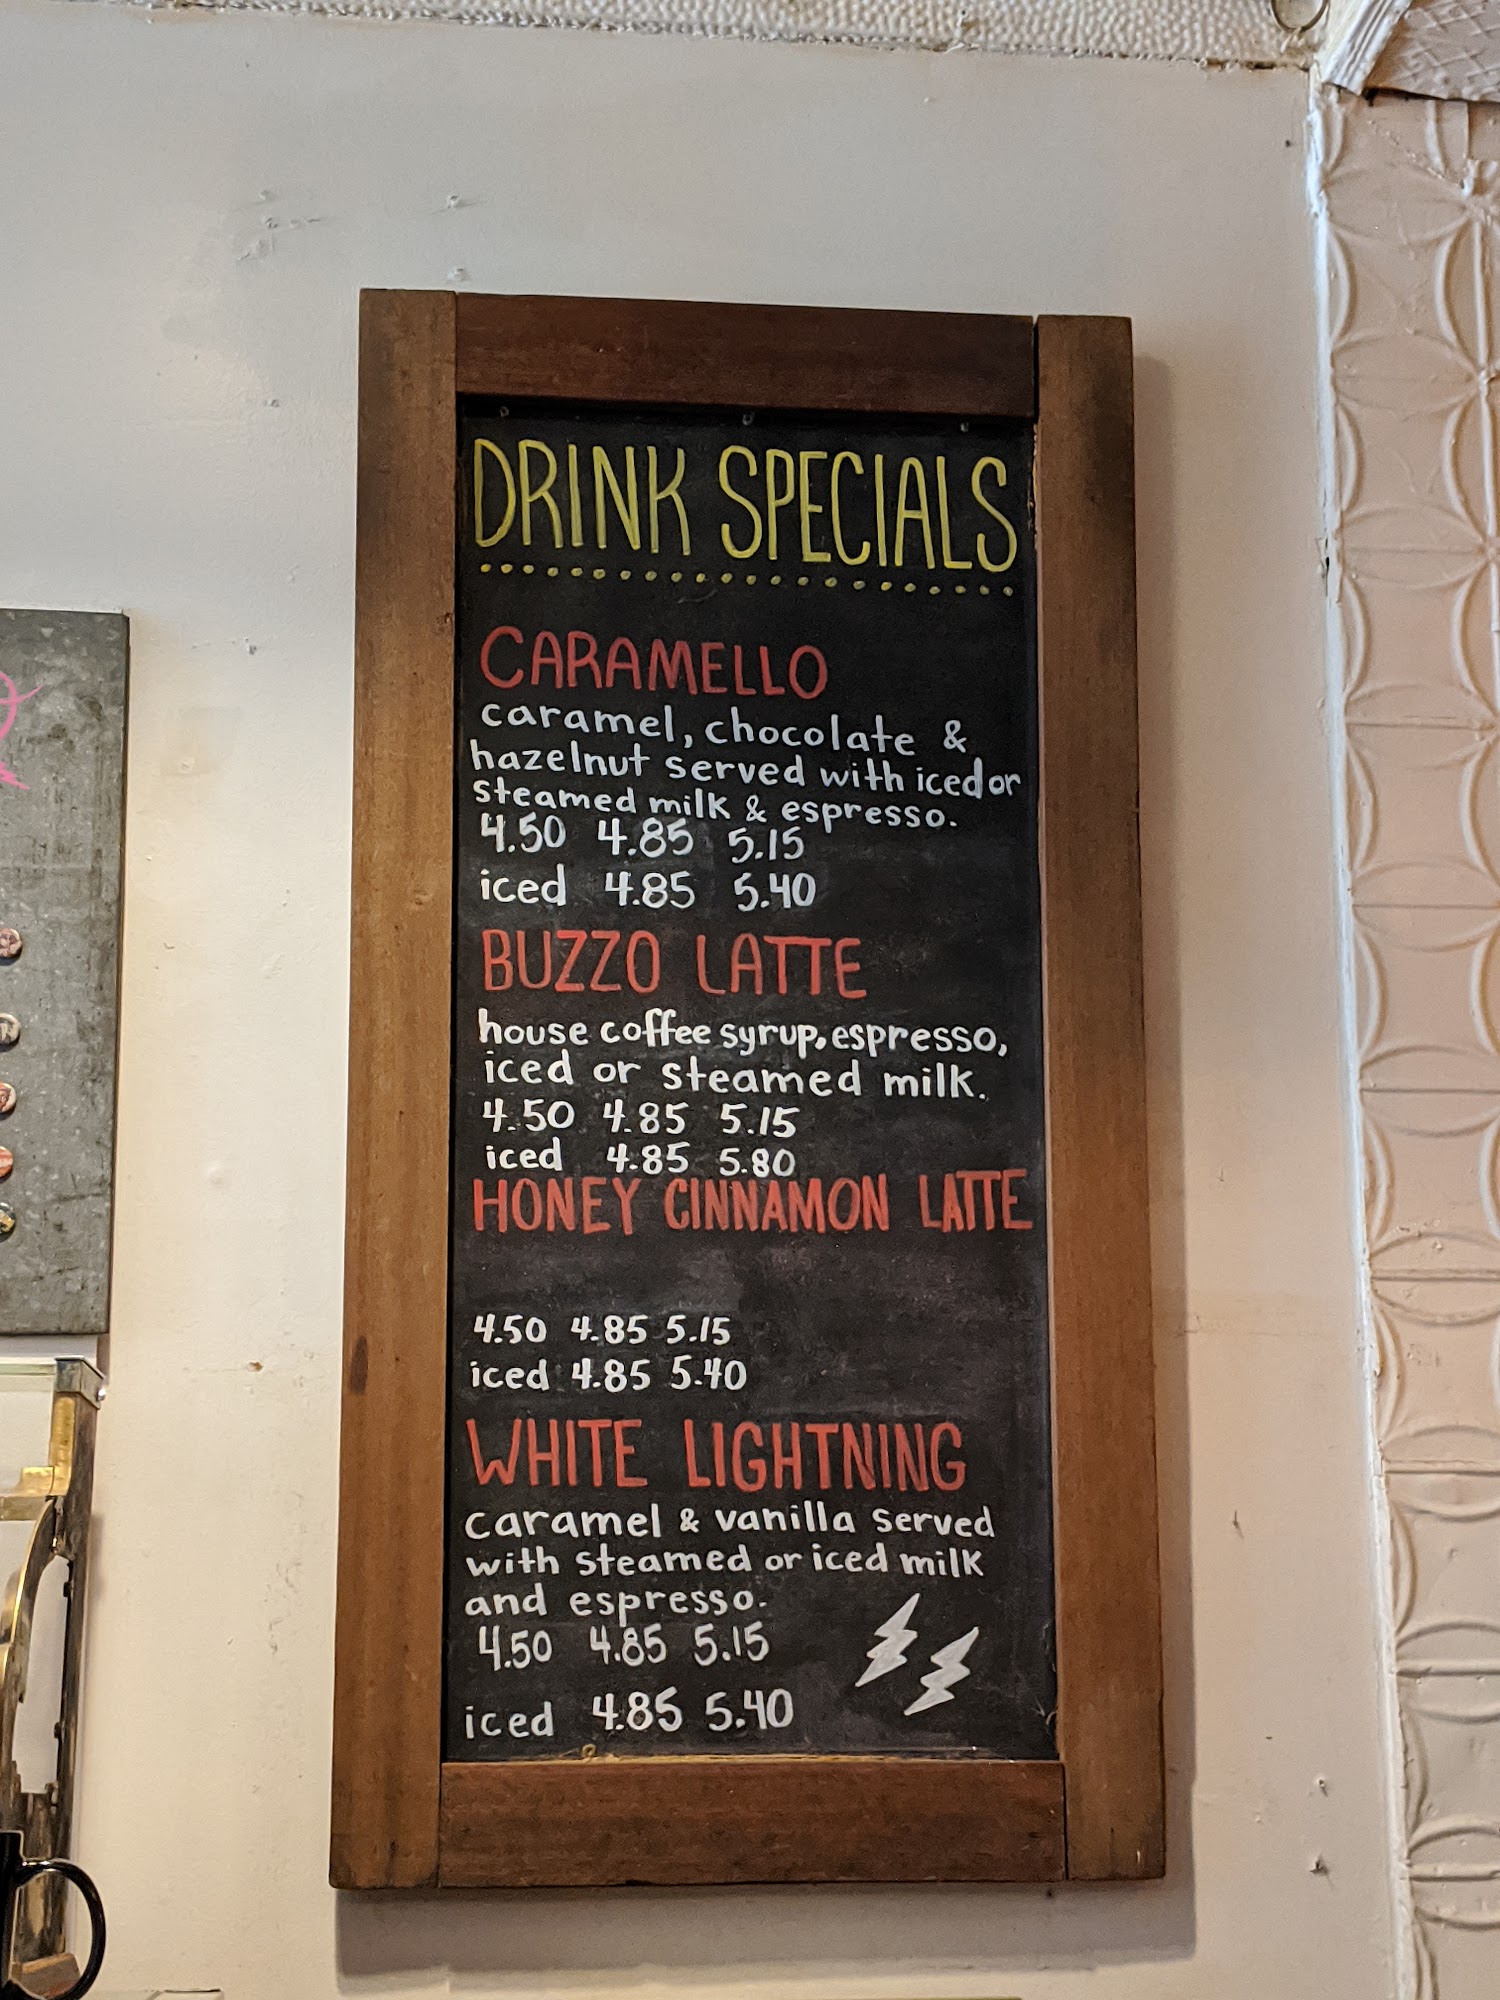 DRINK SPECIALS
CARAMELLO
caramel, chocolate &
hazelnut served with iced or
steamed milk & espresso.
4.50 4.85 5.15
iced 4.85 5.40
BUZZO LATTE
house coffee syrup, espresso,
iced or steamed milk.
4.50 4.85 5.15
iced 4.85 5.80
HONEY CINNAMON LATTE
4.50 4.85 5.15
iced 4.85 5.40
WHITE LIGHTNING
caramel & vanilla served
with steamed or iced milk
and espresso.
4.50 4.85 5.15
iced 4.85 5.40